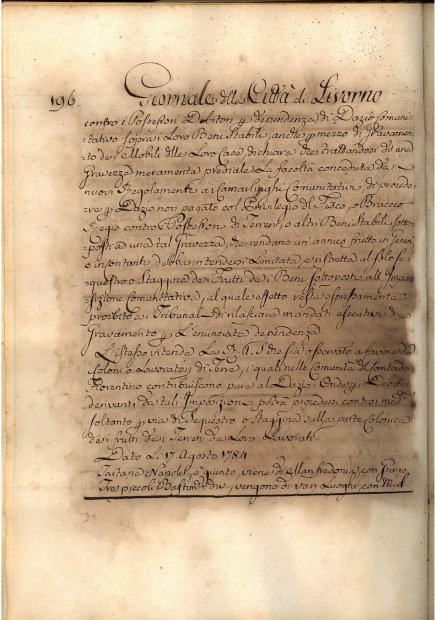 196. Giornale della Città di Livorno
contro i Possessori Debitori p dependenza di Dazio Comuni-
tativo sopra i Loro Beni Stabili, anche p mezzo di Gravamen-
to dei Mobili delle Loro Case, dichiara che trattandosi di una
Gravezza meramente prediale la facoltà conceduta da
nuovi Regolamenti ai Camarlinghi Comunitativi, di procede-
re p Dazio non pagato col Privilegio di Fisco, e Braccio
Regio contro i Possessori di Terreni, o altri Beni Stabili sotto-
posti ad una tal Gravezza che rendano un annuo frutto in genere
o in contanti debba intendersi Limitata, e ristretta al solo se-
questro o Staggina dei Frutti de i Beni sottoposti all Impo-
sizione Comunitativa, al quale effetto resta espressamente
proibito ai Tribunali di rilasciare mandati esecutivi di
Gravamento p L'enunciata dependenza
L'istesso intende La R. A. S. che sia osservato a favore dei
Coloni o Lavoratori di Terre, i quali nelle Comunità del Contado
Fiorentino contribuiscono pure al Dazio. Onde p i Debiti
derivanti da tali Imposizioni potrà procedersi contro med.
soltanto p via di Sequestro o Staggina sulla parte Colonica
de i frutti dei Terreni da Loro Lavorati.
Dato Li 17 Agosto 1784
Tartana Napolet. o quinto viene di Manfredonia, con Grano
Tre piccoli Bastim. che, vengono di van Luoghi, con M. d.